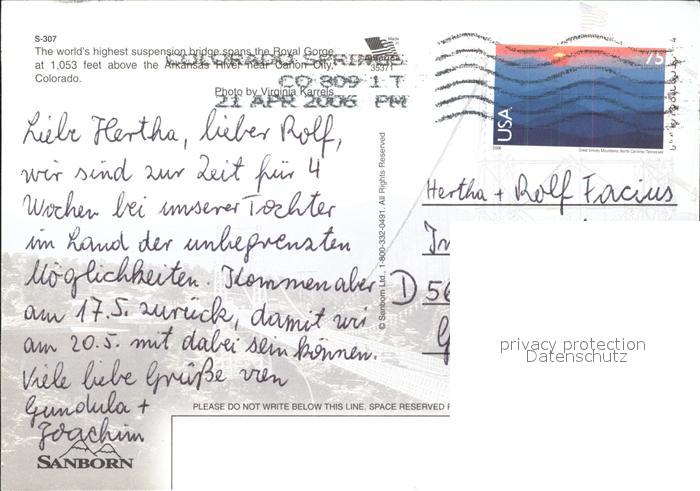 S-307
The world's highest suspension bridge spans the Royal Gorge
at 1,053 feet above the Arkansas River near Canon City,
Colorado.
Photo by Virginia Karrels
Made in
America
35371
COLORADO SPRINGS
CO 809 1 T
21 APR 2006 PM
75
USA
2006
Great Smoky Mountains, North Carolina-Tennessee
Liebe Hertha, lieber Rolf,
wir sind zur Zeit für 4
Wochen bei unserer Tochter
im Land der unbegrenzten
Möglichkeiten. Kommen aber
am 17.5. zurück, damit wir
am 20.5. mit dabei sein können.
Viele liebe Grüße von
Gundula +
Joachim
© Sanborn Ltd., 1-800-332-0491. All Rights Reserved
Hertha + Rolf Facius
D 56
privacy protection
Datenschutz
PLEASE DO NOT WRITE BELOW THIS LINE. SPACE RESERVED F
SANBORN